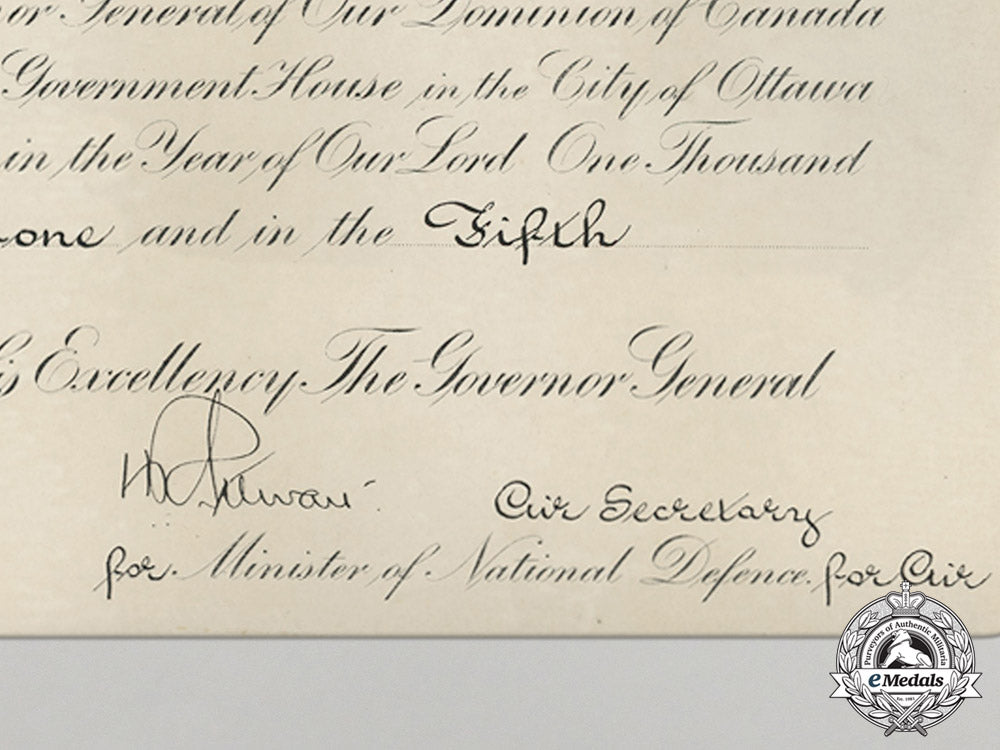 or General of Our Dominion of Canada
Government House in the City of Ottawa
in the Year of Our Lord One Thousand
-one and in the Fifth
is Excellency The Governor General
Air Secretary
for Minister of National Defence for Air
Purveyors of Authentic Militaria
eMedals
Est. 1981